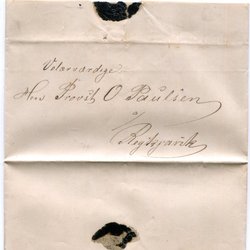 Velærværdige
Herr Provst O Paulsen
a/
Reykjavik